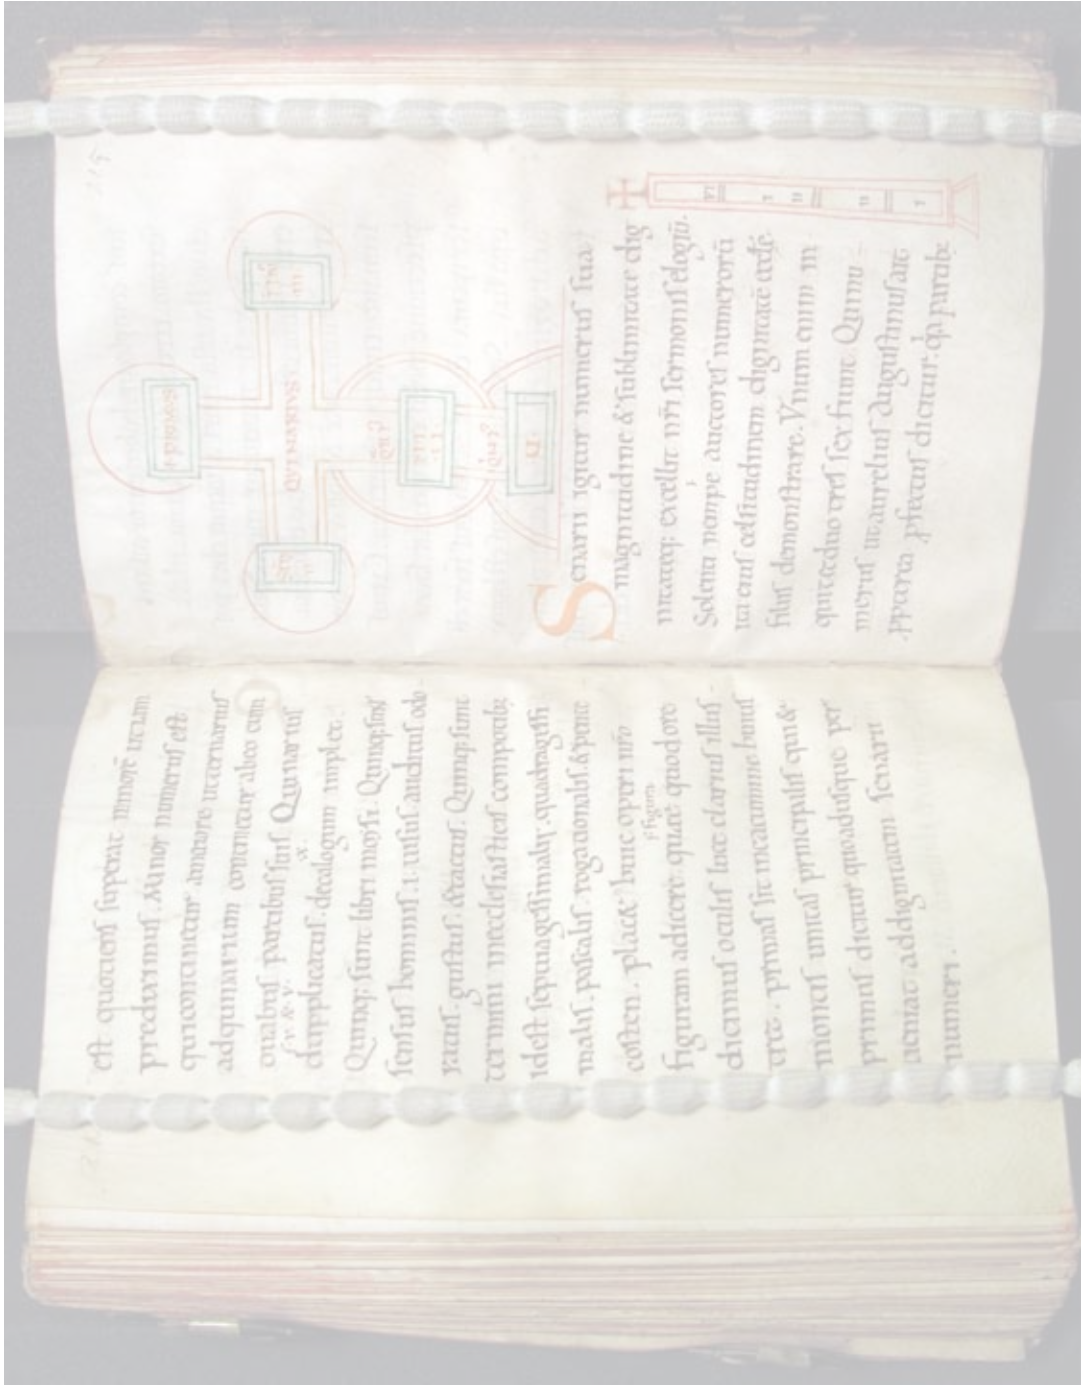 est quotiens superat minorē utrum
preduximus. Minor numerus est
qui continetur a maiore ut ternarius
ad quinarium continetur ab eo cum
duabus partibus suis Quinarius
.s. v. & v. .x.
dupplicatus. decalogum implet.
Quinq; sunt libri moysi. Quinq; sunt
sensus hominis .i. uisus. auditus. odo
ratus. gustus. & tactus. Quinq; sunt
termini in ecclesiasticis compotib;
id est septuagessimalis. quadragissi
malis. pascalis. rogationalis. & pente
costen. placet huic operi nr̄o
figura
figuram adicere. quare quod ore
dicimus oculis luce clarius illus
tret. primas sit in cacumine huius
montis unitas principalis qui &
primus dicitur quo adusque per
ueniat ad dignitatem senarii
numeri.
QUINARIUS
Senarii igitur numerus sua
magnitudine & sublimitate dig
nitateq; excellit nr̄i sermonis elogiū.
Solent nempe auctores numerorū
ita eius celsitudinem dignitatē
filius demonstrare. Vnum enim in
quit & duo & tres sex fiunt. Quinu
merus ut aurelius augustinus ait
.ppt̄ea pfectus dicitur. q̄a partib;